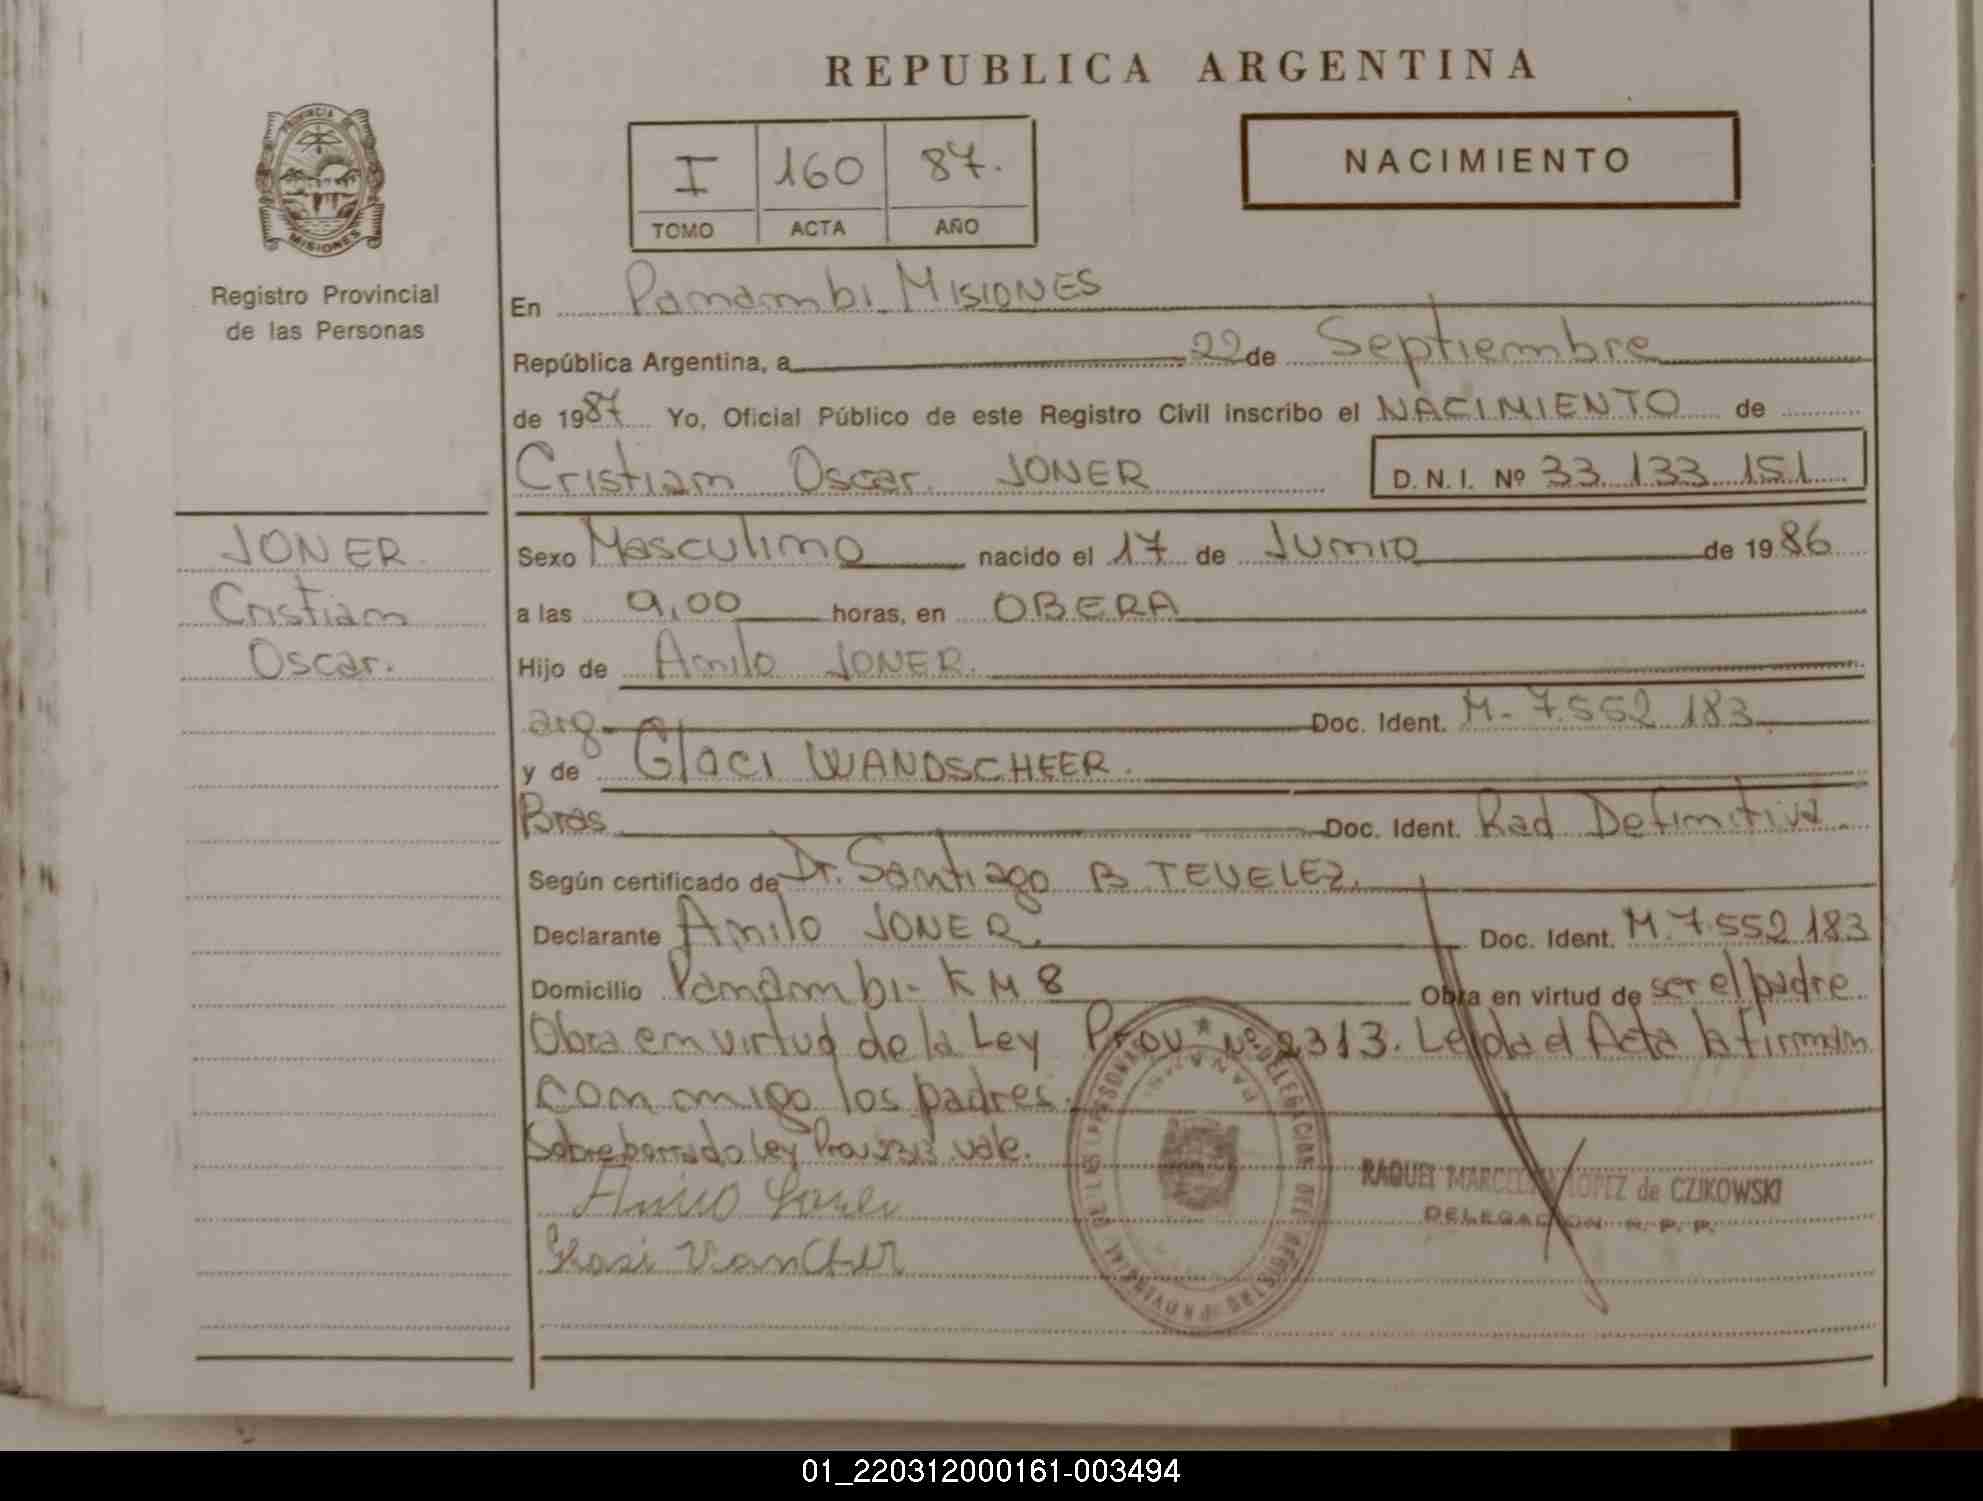 REPUBLICA ARGENTINA
PROVINCIA DE
MISIONES
Registro Provincial
de las Personas
I 160 87.
TOMO ACTA AÑO
NACIMIENTO
En Panambi MISIONES
República Argentina, a 22 de Septiembre
de 1987 Yo, Oficial Público de este Registro Civil inscribo el NACIMIENTO de
Cristian Oscar JONER D.N.I. Nº 33.133.151
JONER
Cristian
Oscar.
Sexo Masculino nacido el 17 de Junio de 1986
a las 9,00 horas, en OBERA
Hijo de Anilo JONER.
arg Doc. Ident. M-7.552 183
y de Glaci WANDSCHEER.
Bras Doc. Ident. Rad Definitiva
Según certificado de Dr. Santiago B TEVELEZ.
Declarante Anilo JONER. Doc. Ident. M.7.552 183
Domicilio Panambi- KM 8 Obra en virtud de ser el padre
Obra en virtud de la Ley Prov Nº 2313. Leida el Acta la firman
conmigo los padres.
Sobreborrado Ley Prov 2313 vale.
DELEGACION DEL REGISTRO PROVINCIAL DE LAS PERSONAS
PANAMBI
RAQUEL MARCELINA LOPEZ de CZIKOWSKI
DELEGACION R. P. P.
01_220312000161-003494